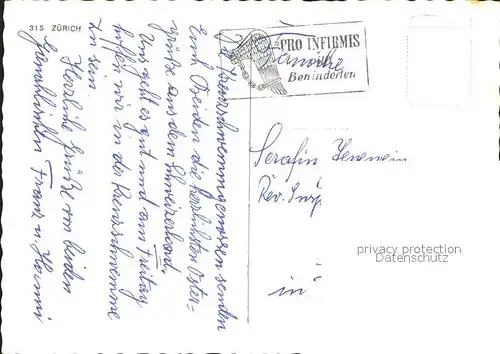 315 ZÜRICH
PRO INFIRMIS
Behinderten
Familie
Serafin
Rev. Insp
in
privacy protection
Datenschutz
senden
euch Beiden die herzlichsten Oster-
grüße aus dem Schweizerland.
Uns geht es gut und am Freitag
hoffen wir in der Kreuzschwemme
zu sein.
Herzliche Grüße von beiden
Franz u. Hanni